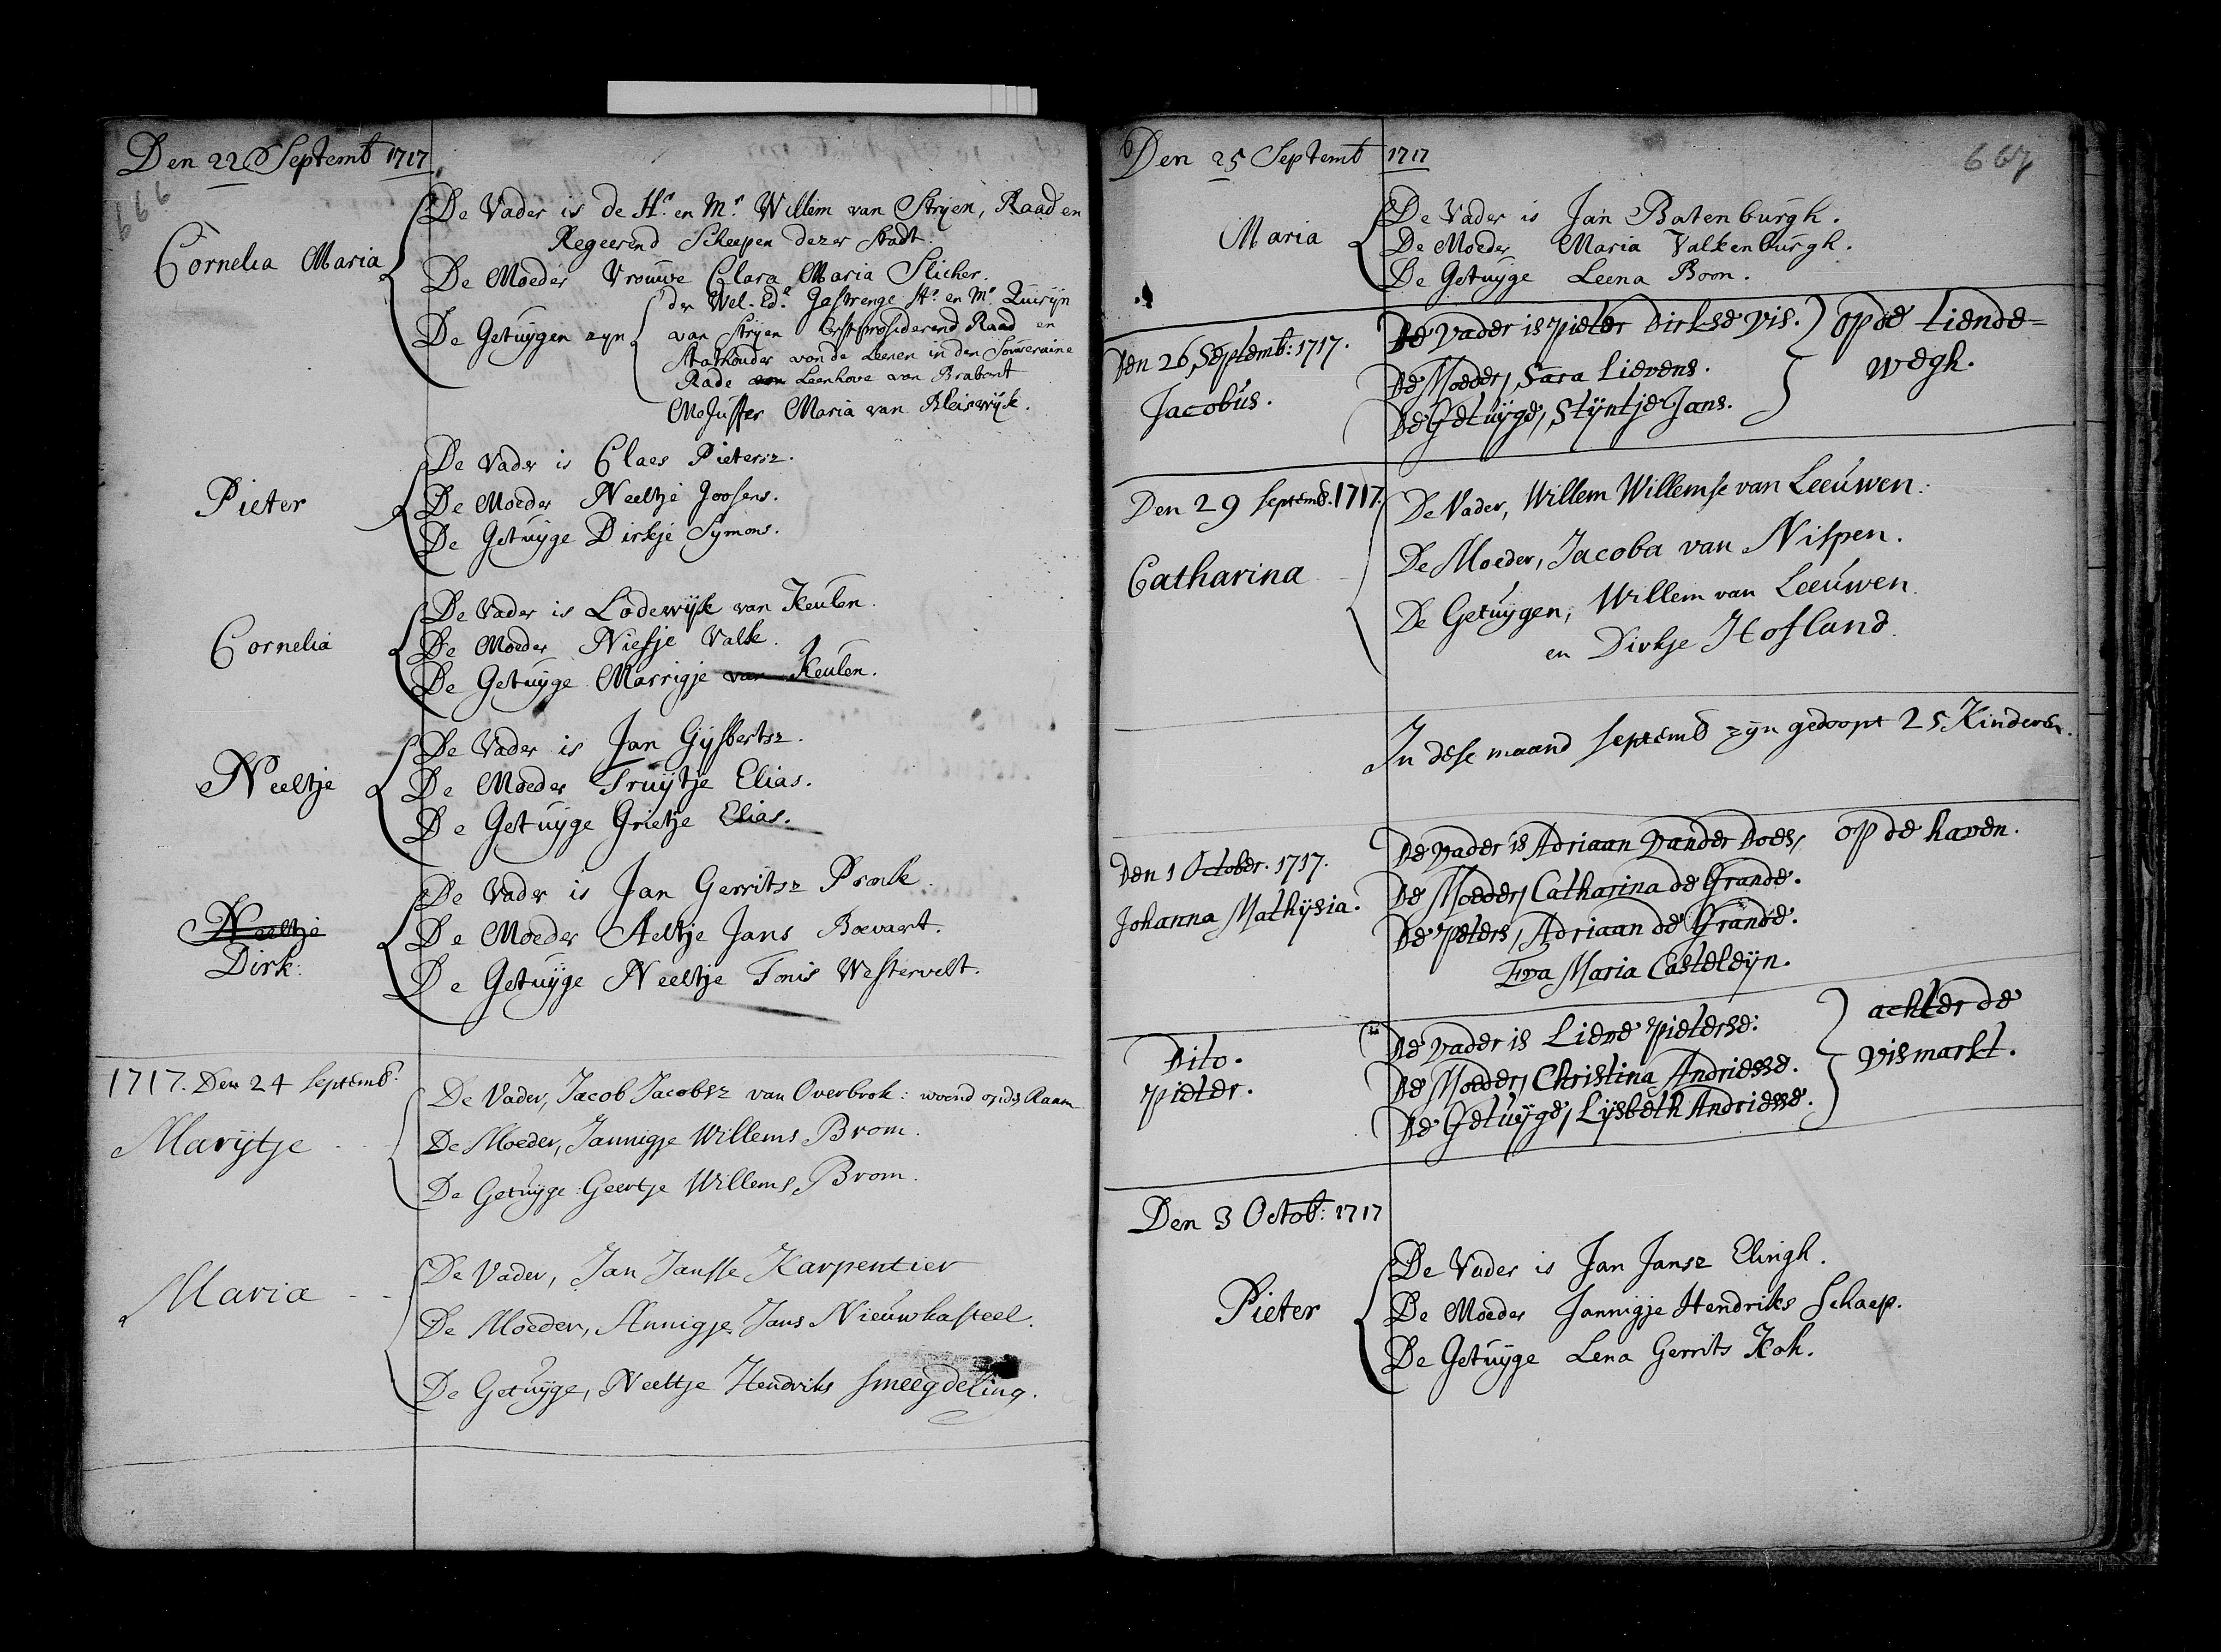 Den 22 Septemb 1717.
666
Cornelia Maria
De Vader is de Hr. en Mr. Willem van Stryen, Raad en
Regeerend Scheepen dezer Stadt.
De Moeder Vrouwe Clara Maria Slicher.
De Getuÿgen zyn
der Wel. Ed.e Gestrenge Hr. en Mr. Quiryn
van Stryen Eerstpresiderend Raad en
Stathouder van de Leenen in den Souveraine
Rade Leenhove van Brabant
Mejuffer Maria van Bleiswÿk.
Pieter
De Vader is Claes Pietersz.
De Moeder Neeltje Joosens.
De Getuÿge Dirkje Symons.
Cornelia
De Vader is Lodewyk van Keulen.
De Moeder Niesje Valk.
De Getuÿge Marrigje van Keulen.
Neeltje
De Vader is Jan Gysbertsz.
De Moeder Truÿtje Elias.
De Getuÿge Grietje Elias.
Neeltje
Dirk.
De Vader is Jan Gerritsz Pronk.
De Moeder Aeltje Jans Boevaert.
De Getuÿge Neeltje Tonis Westervelt.
1717. Den 24 Septemb.
Marÿtje
De Vader, Jacob Jacobsz van Overbrok: woond op de Raam
De Moeder, Jannigje Willems Brom.
De Getuÿge Geertje Willems Brom.
Maria
De Vader, Jan Jansse Karpentier
De Moeder, Annigje Jans Nieuwkasteel.
De Getuÿge, Neeltje Hendriks Smeegdeling.
Den 25 Septemb 1717
667
Maria
De Vader is Jan Batenburgh.
De Moeder Maria Valkenburgh.
De Getuÿge Leena Boon.
Den 26 Septemb: 1717.
Jacobus.
De Vader is Pieter Dirkse Vis.
De Moeder, Sara Lievens.
De Getuÿge, Stÿntje Jans.
op de tiende=
wegh.
Den 29 Septemb. 1717.
Catharina
De Vader, Willem Willemse van Leeuwen.
De Moeder, Jacoba van Nispen.
De Getuÿgen, Willem van Leeuwen
en Dirkje Hofland.
In dese maand Septemb zyn gedoopt 25 Kinderen.
Den 1 October. 1717.
Johanna Mathÿsia.
De Vader is Adriaan Vander Does, op de haven.
De Moeder, Catharina de Grande.
De Peters, Adriaan de Grande.
Eva Maria Casteleÿn.
Dito.
Pieter.
De Vader is Lieve Pieterse.
De Moeder, Christina Andriesse.
De Getuÿge, Lÿsbeth Andriesse.
achter de
Vismarkt.
Den 3 Octob: 1717
Pieter
De Vader is Jan Jansz Elingh.
De Moeder Jannigje Hendriks Schaep.
De Getuÿge Lena Gerrits Kok.